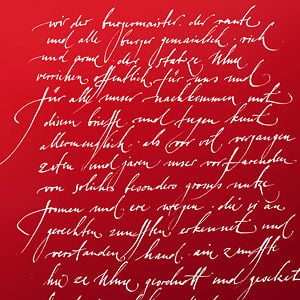 wir der burgermaister der raute
und alle burger gemainlich rich
und arme der statze Ulme
verriehen offenlich für uns und
für alle unser nachkommen mit
disem brieffe und tugen kunt
allermenglich als vor vil vergangen
ziten und jaren unser vorfarenden
von solichs besonders groms nutze
fromen und ere wegen die si an
gerechten zunfften erkennet und
verstanden hand ain zunffte
hie ze Ulme geordnett und gesetzet